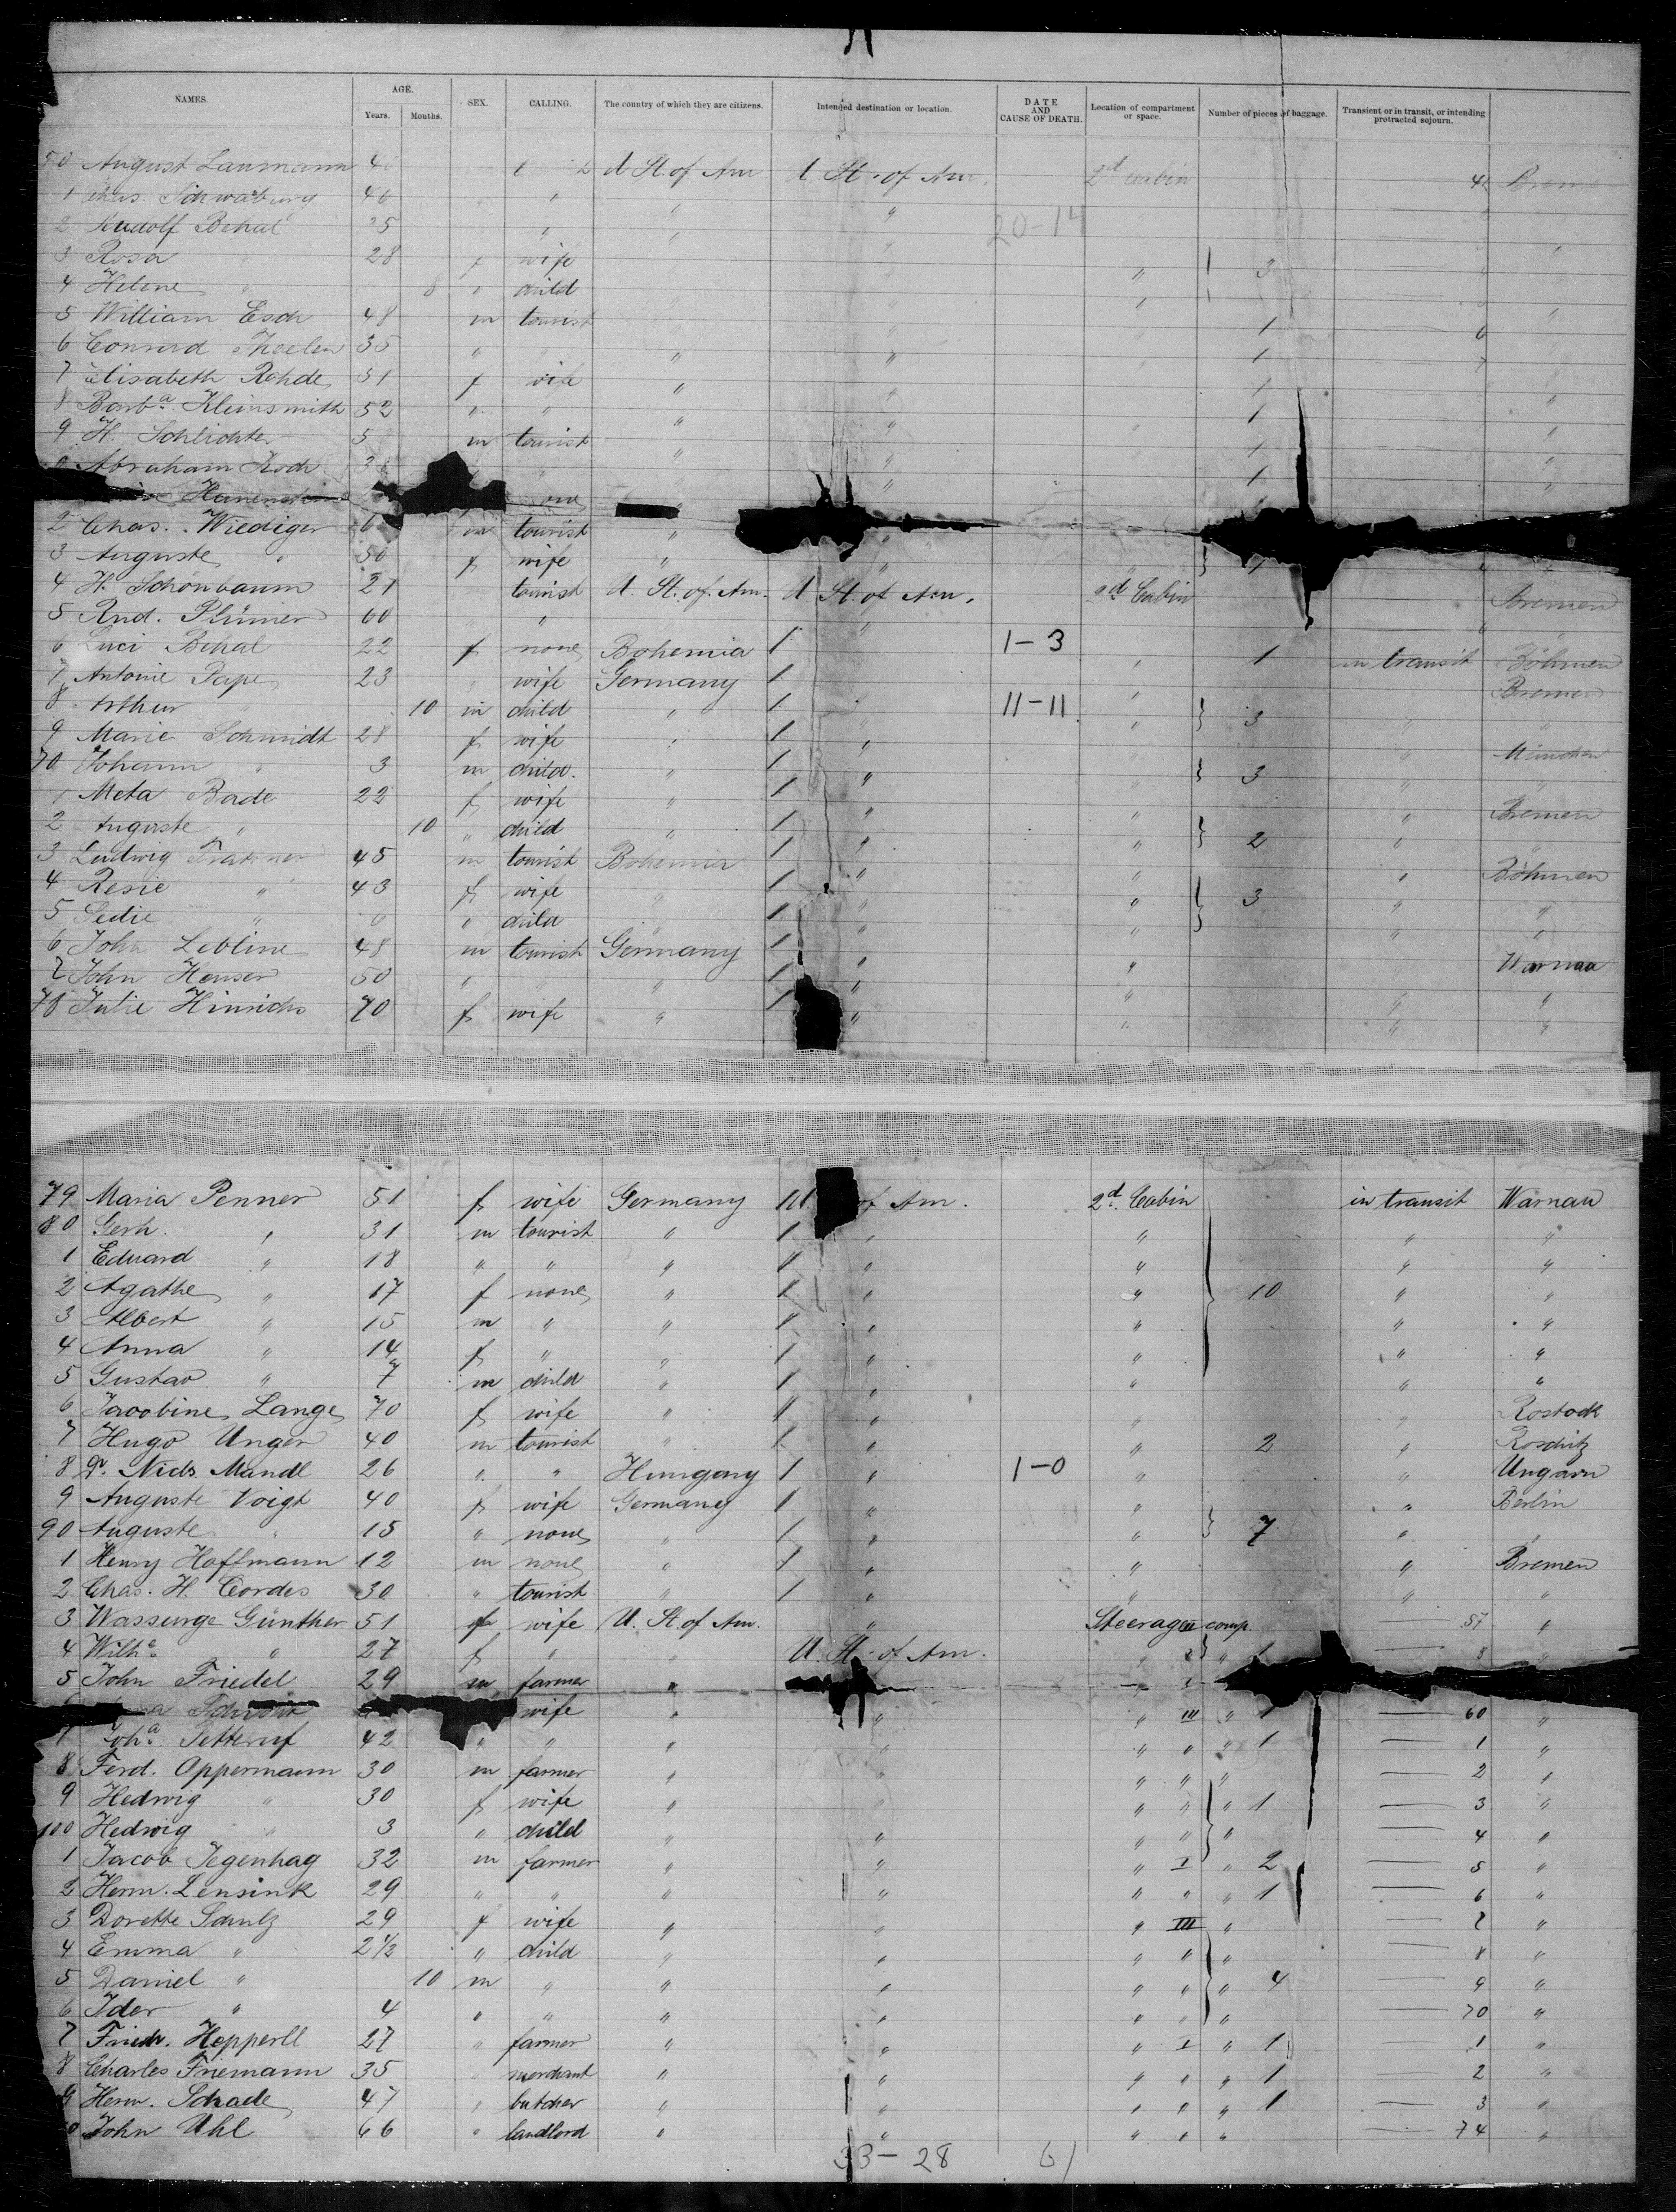 NAMES. AGE. Years. Months. SEX. CALLING. The country of which they are citizens. Intended destination or location. DATE AND CAUSE OF DEATH. Location of compartment or space. Number of pieces of baggage. Transient or in transit, or intending protracted sojourn.
50 August Laumann U St. of Am. U St. of Am. 2d Cabin
1 Chas. 46 " " "
2 Rudolf Behal 35 " " " 20-14
3 Rosa " 28 f wife " " " 3 "
4 Helene " 8 " child " " "
5 William Esch 48 m tourist " " 1 6 "
6 Conrad Theelen 35 " " " 1 7
7 Elisabeth Rohde 31 f wife " " 1 "
8 Barba. Kleinsmith 52 " " " " 1 "
9 H. Schlichter m tourist " " 1 "
Abraham Koch " " 1 "
2 Chas. Wiediger m tourist " "
3 Auguste " 50 f wife " "
4 H. Schönbaum 21 tourist U. St. of Am. U St. of Am. 2d Cabin Bremen
5 Rud. Plümer 60 " " "
6 Luci Behal 22 f none Bohemia " 1-3 " 1 in transit Böhmen
7 Antonie Pape 23 " wife Germany " " Bremen
8 Arthur " 10 m child " " 11-11 " 3 " "
9 Marie Schmidt 28 f wife " " " München
70 Johann " 3 m child. " " " 3 " "
1 Meta Bade 22 f wife " " " " Bremen
2 Auguste " 10 " child " " " 2 " "
3 Ludwig 45 m tourist Bohemia " " " Böhmen
4 Resie " 43 f wife " " " 3 " "
5 Sedie " " child " " " " "
6 John Lebline 48 m tourist Germany " " Warnau
7 John Heuser 50 " " " " " "
78 Julie Hinrichs 70 f wife " " " " "
79 Maria Penner 51 f wife Germany U of Am. 2d. Cabin in transit Warnau
80 Gerh. " 31 m tourist " " " " "
1 Eduard " 18 " " " " " " "
2 Agathe " 17 f none " " " 10 " "
3 Albert " 15 m " " " " " "
4 Anna " 14 f " " " " " "
5 Gustav " 7 m child " " " " "
6 Jacobine Lange 70 f wife " " " " Rostock
7 Hugo Unger 40 m tourist " " " 2 " Roschitz
8 Dr. Nids. Mandl 26 " " Hungary " 1-0 " " Ungarn
9 Auguste Voigt 40 f wife Germany " " " Berlin
90 Auguste " 15 " none " " " 7 " "
1 Henry Hoffmann 12 m none " " " " Bremen
2 Chas. H. Cordes 30 " tourist " " " " "
3 Wassurge Günther 51 f wife U. St. of Am. " Steerage comp. 57 "
4 Wilhe. " 27 f " " U. St. of Am. " "
5 John Friedel 29 m farmer " "
wife " " " III " 1 60 "
7 Joha. Setteruf 42 " " " " " " " 1 1 "
8 Ferd. Oppermann 30 m farmer " " " " " 2 "
9 Hedwig " 30 f wife " " " " " 1 3 "
100 Hedwig " 3 " child " " " " " 4 "
1 Jacob Tegenhag 32 m farmer " " " I " 2 5 "
2 Herm. Lensink 29 " " " " " " " 1 6 "
3 Dorette Schulz 29 f wife " " " III " 7 "
4 Emma " 2 1/2 " child " " " " " 8 "
5 Daniel " 10 m " " " " " " 4 9 "
6 Ider " 4 " " " " " " " 70 "
7 Friedr. Hepperll 27 " farmer " " " I " 1 1 "
8 Charles Friemann 35 " merchant " " " " " 1 2 "
9 Herm. Schade 47 " butcher " " " " " 1 3 "
10 John Uhl 66 " landlord " " " " " 74 "
33-28 61